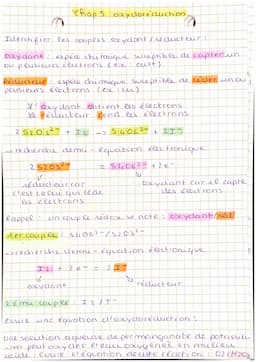 Chap 5 oxydoréduction
Identifier les couples oxydant / réducteur :
oxydant : espèce chimique susceptible de capter un
ou plusieurs électrons (ex : Cu2+)
Réducteur : espèce chimique susceptible de céder un ou
plusieurs électrons (ex : Cu)
L'oxydant obtient les électrons
Le réducteur rend les électrons
2 S2O3²⁻ + I2 → S4O6²⁻ + 2I⁻
→ recherche demi-équation électronique
2 S2O3²⁻ = S4O6²⁻ + 2e⁻
réducteur car
c'est celui qui cède
les électrons
oxydant car il capte
des électrons
Rappel : un couple redox se note : oxydant/réd
1er couple : S4O6²⁻/S2O3²⁻
→ recherche demi-équation électronique
I2 + 2e⁻ = 2 I⁻
oxydant
réducteur
2ème couple : I2 / I⁻
Ecrire une équation d'oxydoréduction :
Une solution aqueuse de permanganate de potassiu-
-m peut oxyder l'eau oxygénée en milieu
acide. Ecrire l'équation de cette réaction : O2/H2O2